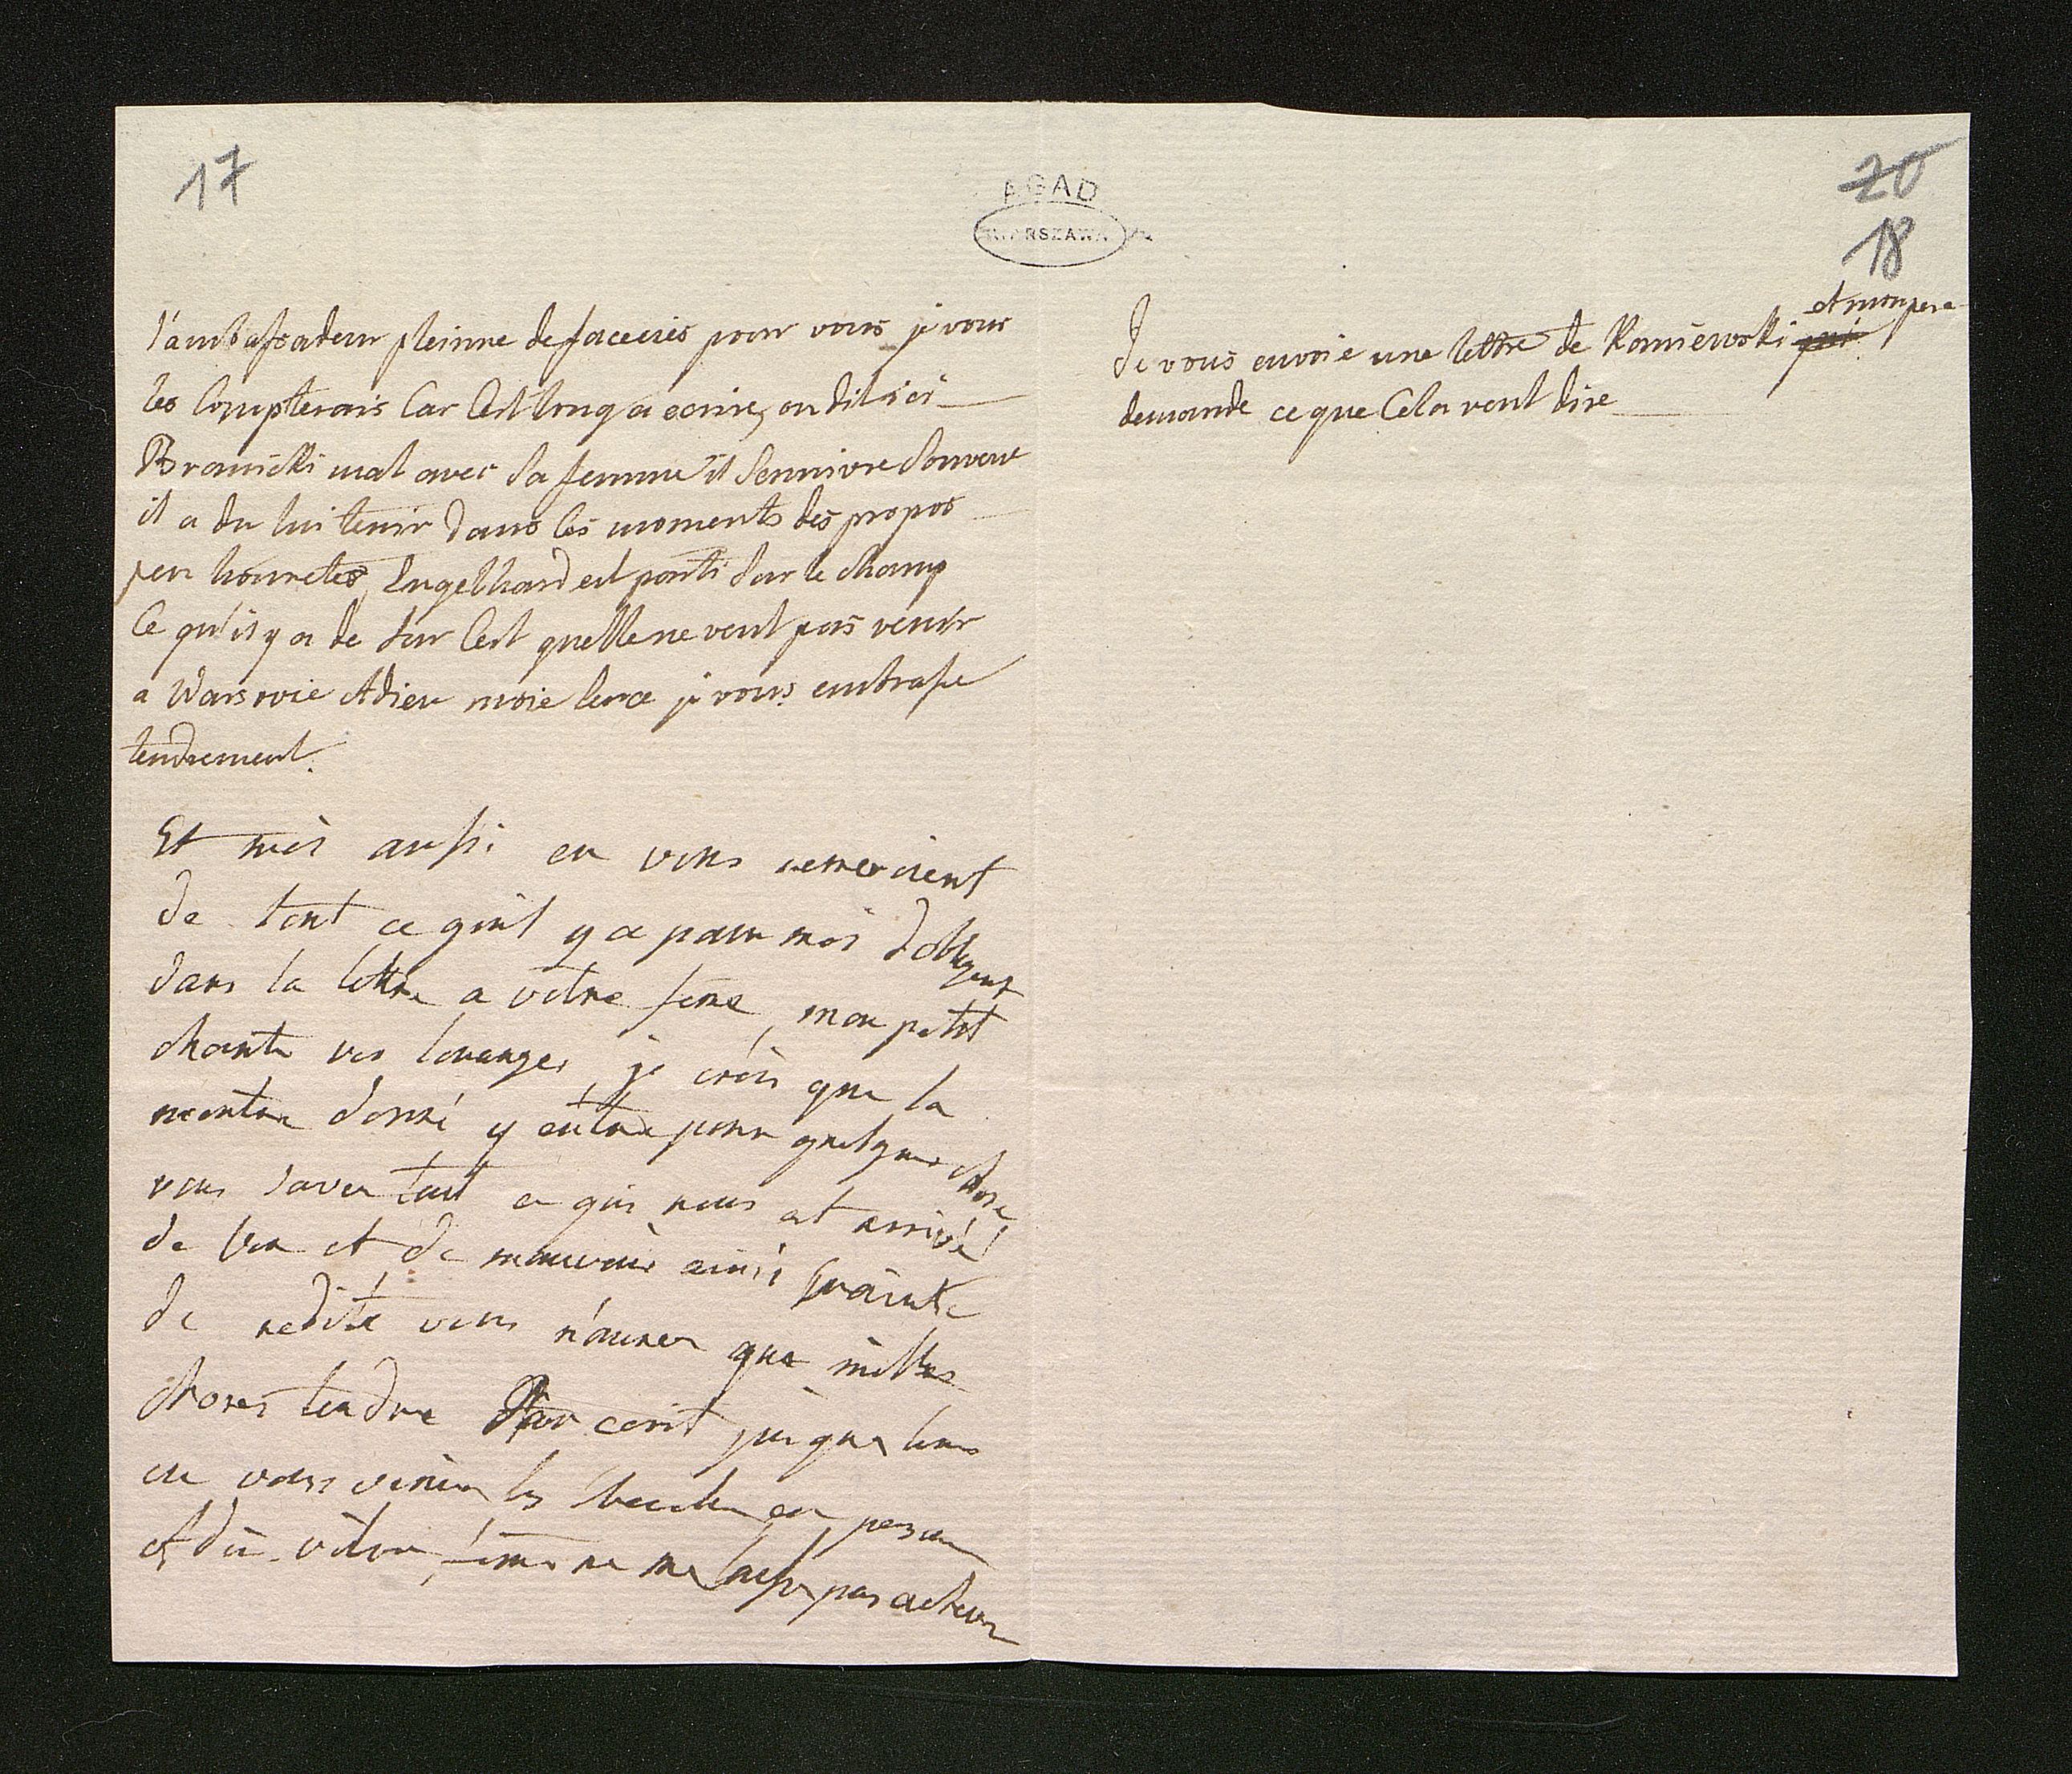 17
AGAD
WARSZAWA
20
18
l'ambassadeur pleinne de faceeies pour vous je vous
les Compterais Car Cest long a ecrire, on dit ici
Branicki mal avec Sa femme il Sennivre Souvent
il a du lui tenir dans les moments des propos
peu honnetes, Engelhard est parti Sur le champ
Ce qu'il y a de Sur Cest quelle ne veut pas venir
a Warsovie Adieu moie Serce je vous embrasse
tendrement.
Et moi aussi en vous remercient
de tout ce quil y a pour moi d'obligent
dans la lettre a votre feme, mon petit
chante vos louanges, je crois que la
montre donné y entre pour quelque chose
vous savez tout ce qui nous est arrivé
de bon et de mauvais ainsi crainte
de redite vous n'aurez que milles
choses tendre par ecrit jusqua
ce vous veniez les en person
Adieu votre feme ne me laisse pas achever
et mon pere
Je vous envoie une lettre de Koniewski qui
demande ce que Cela veut dire